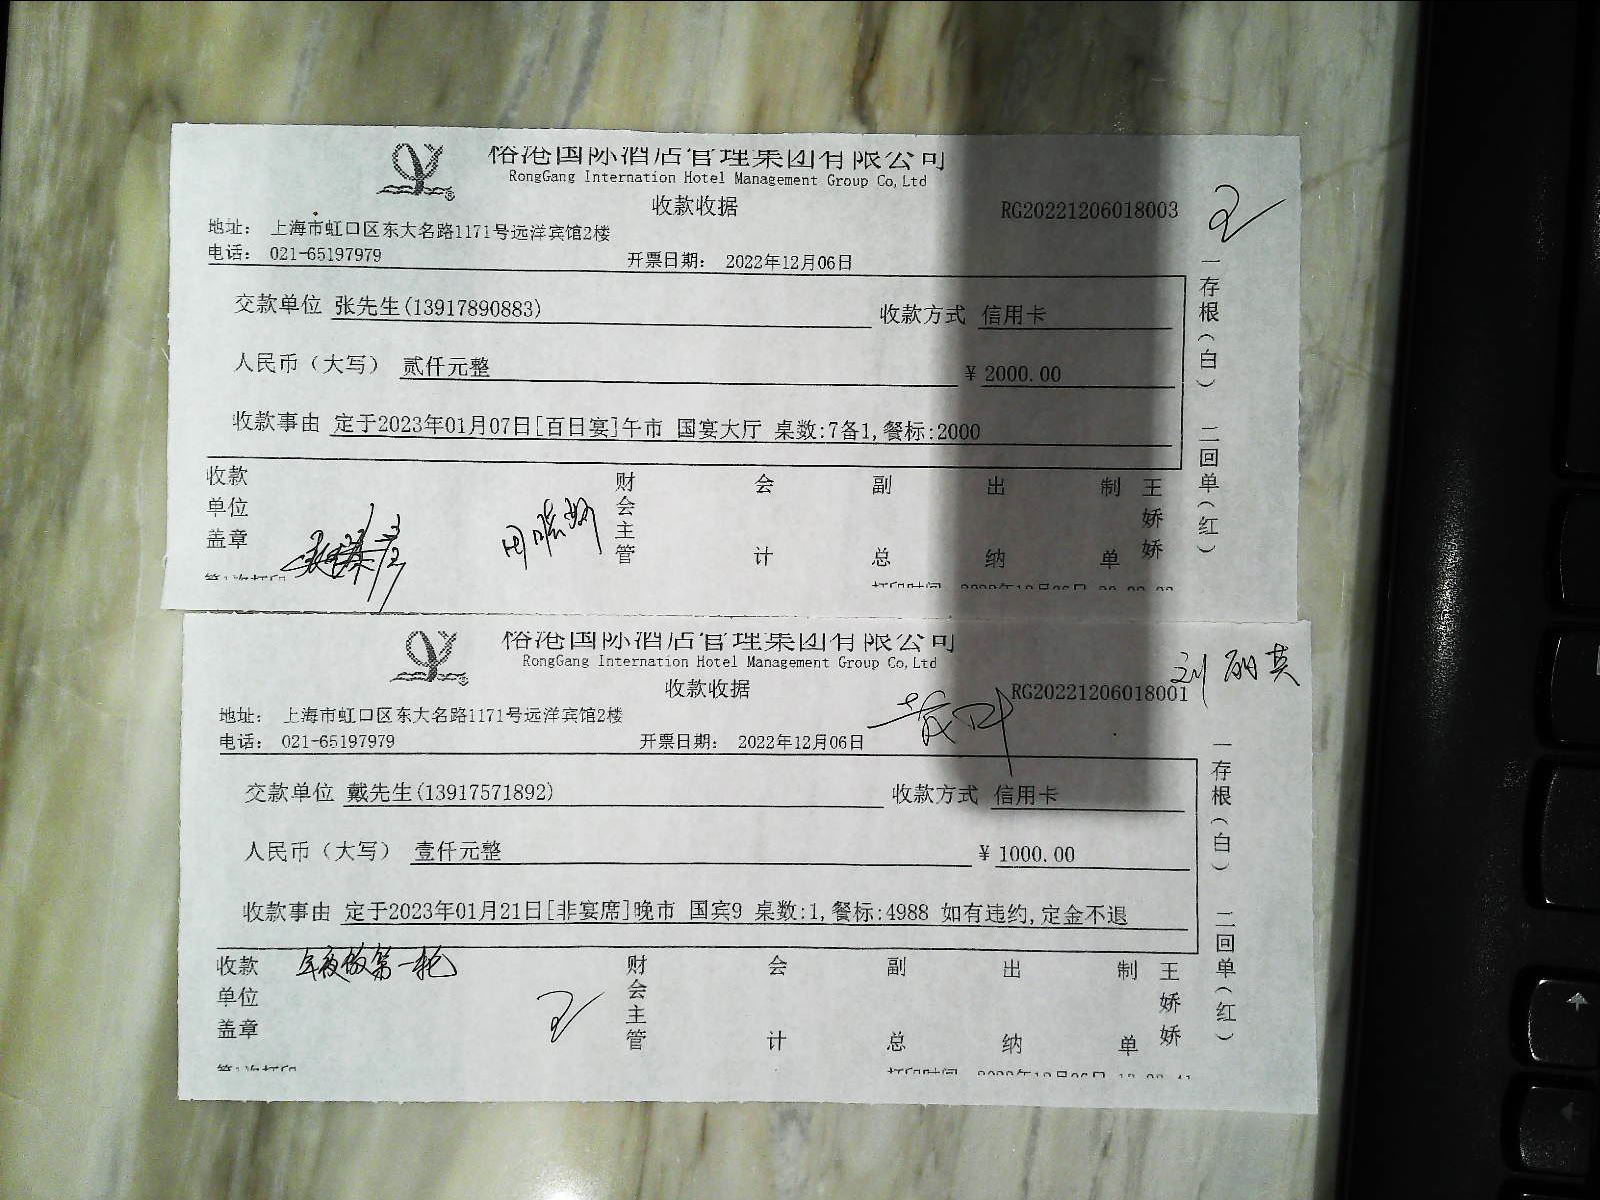 裕港国际酒店管理集团有限公司
RongGang Internation Hotel Management Group Co,Ltd
收款收据
RG20221206018003
地址： 上海市虹口区东大名路1171号远洋宾馆2楼
电话： 021-65197979 开票日期： 2022年12月06日
交款单位 张先生(13917890883) 收款方式 信用卡
人民币（大写） 贰仟元整 ¥ 2000.00
收款事由 定于2023年01月07日[百日宴]午市 国宴大厅 桌数:7备1,餐标:2000
一存根（白） 二回单（红）
收款单位盖章 财会主管 会计 副总 出纳 制单 王娇娇
第1次打印 打印时间 2022年12月06日
裕港国际酒店管理集团有限公司
RongGang Internation Hotel Management Group Co,Ltd
收款收据
刘丽英
RG20221206018001
地址： 上海市虹口区东大名路1171号远洋宾馆2楼
电话： 021-65197979 开票日期： 2022年12月06日
交款单位 戴先生(13917571892) 收款方式 信用卡
人民币（大写） 壹仟元整 ¥ 1000.00
收款事由 定于2023年01月21日[非宴席]晚市 国宾9 桌数:1,餐标:4988 如有违约,定金不退
一存根（白） 二回单（红）
年夜饭第一轮
收款单位盖章 财会主管 会计 副总 出纳 制单 王娇娇
第1次打印 打印时间 2022年12月06日